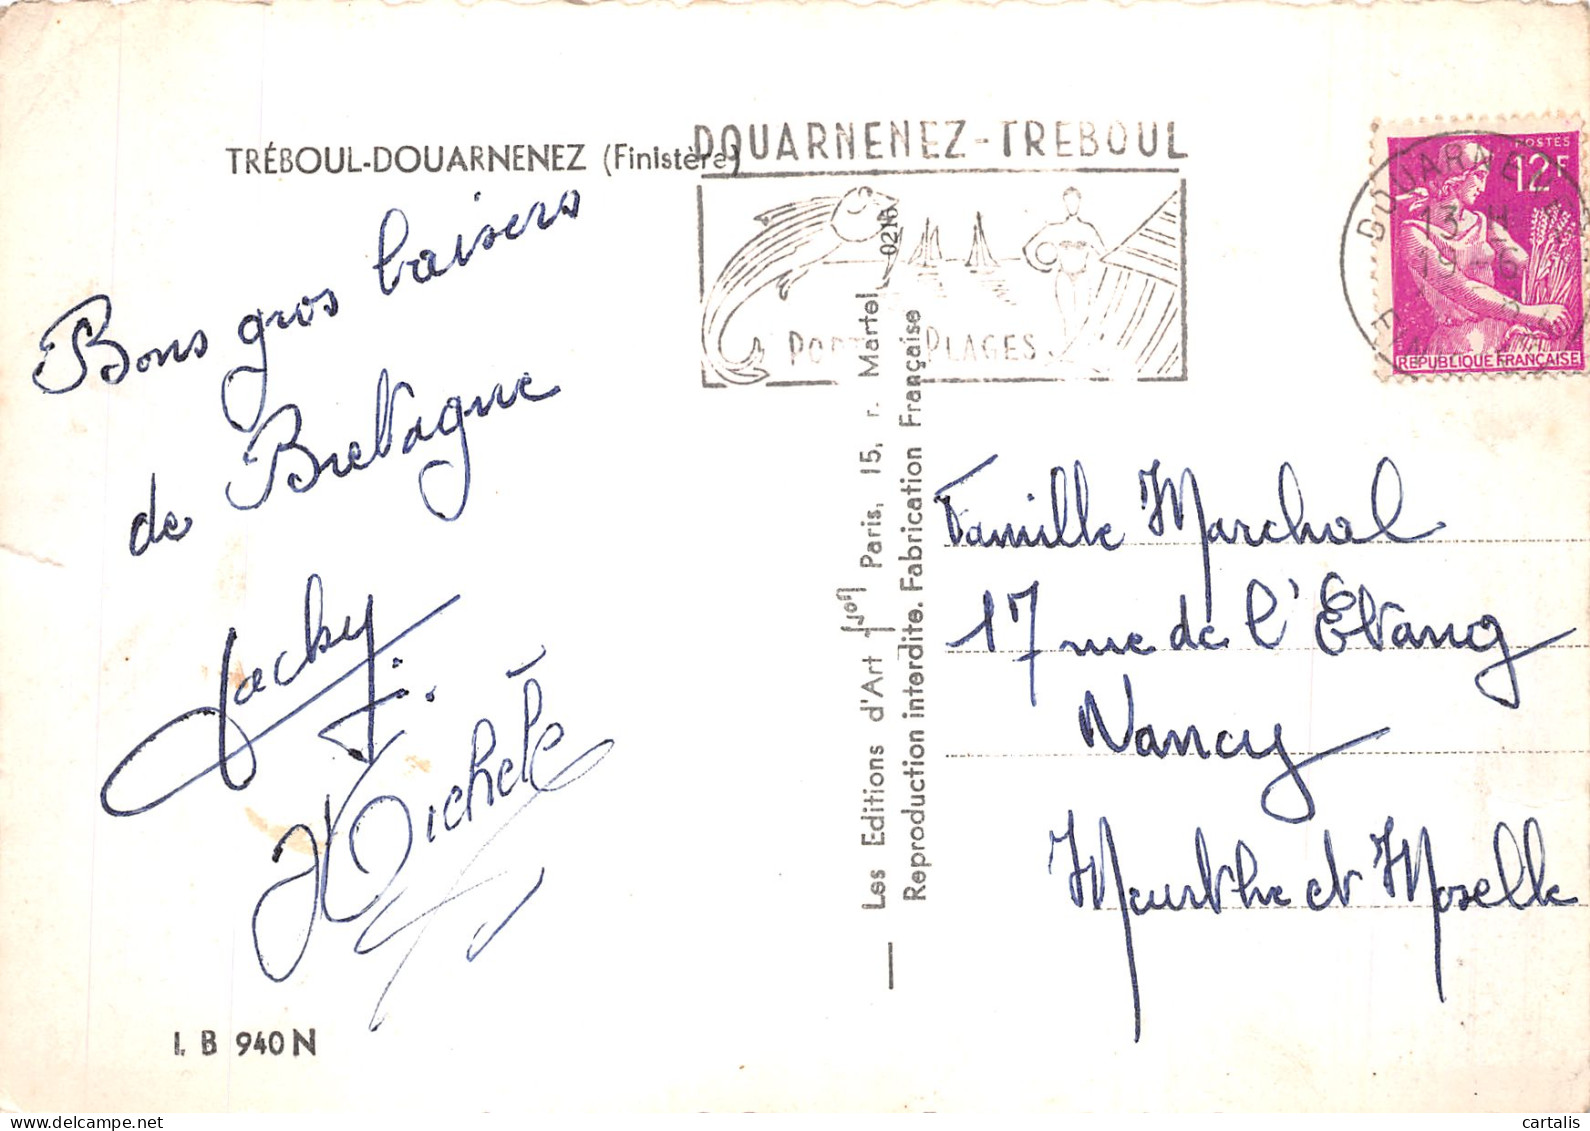 TRÉBOUL-DOUARNENEZ (Finistère)
Bons gros baisers
de Bretagne
Jacky
Michèle
I. B 940 N
DOUARNENEZ-TREBOUL
PORT PLAGES
DOUARNENEZ
13 H
19-6
POSTES
12F
REPUBLIQUE FRANÇAISE
Les Editions d'Art Paris, 15, r. Martel 0216
Reproduction interdite. Fabrication Française
Famille Marchal
17 rue de l'Etang
Nancy
Meurthe et Moselle
cartalis
www.delcampe.net